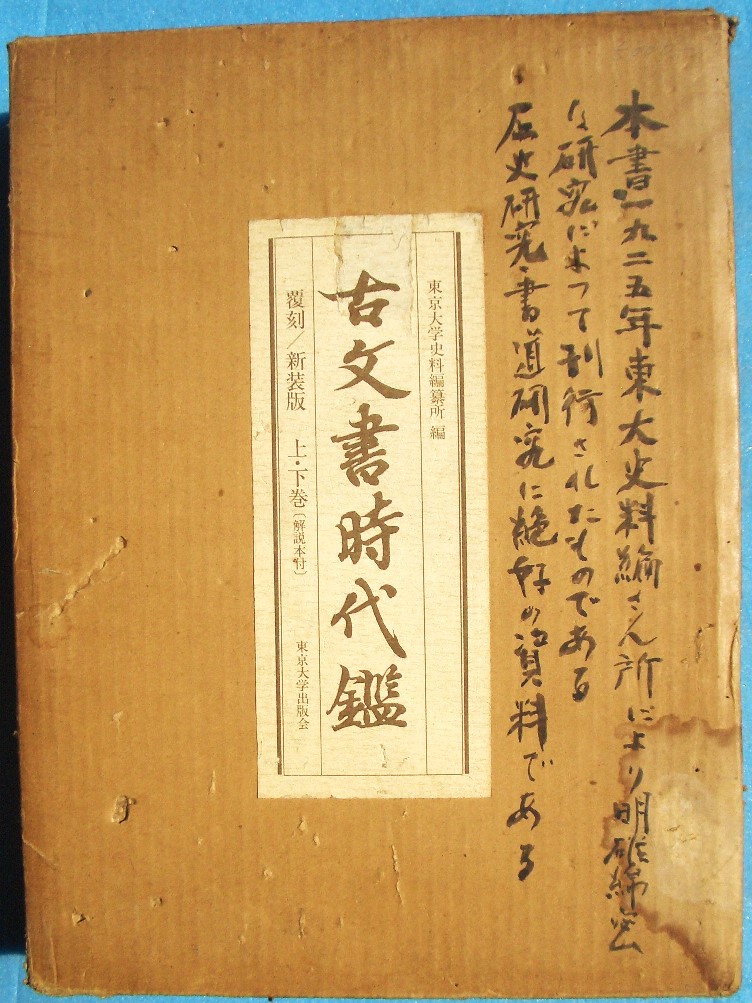 本書ハ一九二五年東大史料編さん所により明確綿密
な研究によって刊行されたものである
歴史研究・書道研究に絶好の資料である
東京大学史料編纂所 編
古文書時代鑑
覆刻／新装版 上・下巻〔解説本付〕
東京大学出版会